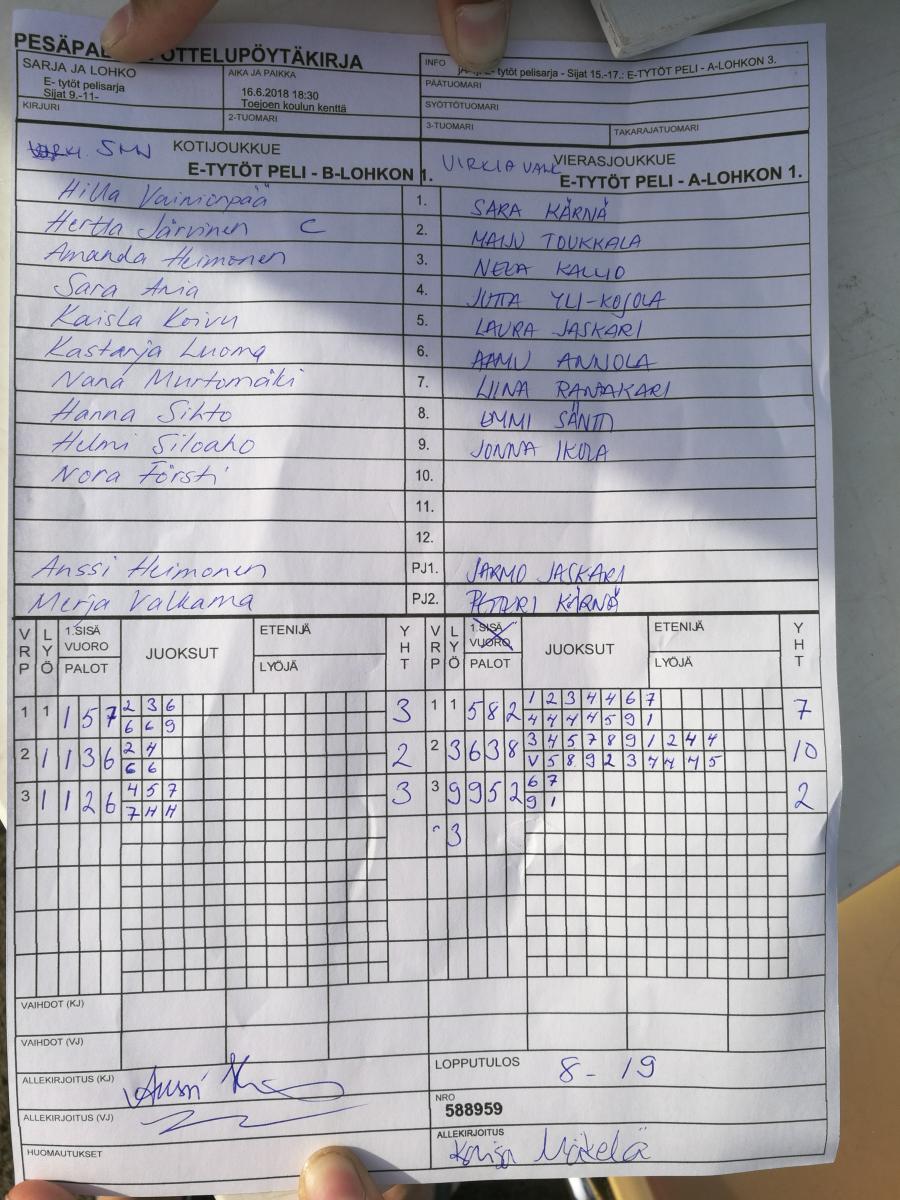 PESÄPAL OTTELUPÖYTÄKIRJA
SARJA JA LOHKO
E- tytöt pelisarja
Sijat 9.-11-
AIKA JA PAIKKA
16.6.2018 18:30
Toejoen koulun kenttä
INFO
tytöt pelisarja - Sijat 15.-17.: E-TYTÖT PELI - A-LOHKON 3.
PÄÄTUOMARI
SYÖTTÖTUOMARI
KIRJURI
2-TUOMARI
3-TUOMARI
TAKARAJATUOMARI
SMJ KOTIJOUKKUE
E-TYTÖT PELI - B-LOHKON 1.
VIRKIA VIERASJOUKKUE
E-TYTÖT PELI - A-LOHKON 1.
Hilla Vainionpää 1. SARA KÄRNÄ
Hertta Järvinen C 2. MAIJU TOUKKALA
Amanda Heimonen 3. NEEA KALLIO
Sara Ania 4. JUTTA YLI-KOJOLA
Kaisla Koivu 5. LAURA JASKARI
Kastanja Luoma 6. AAMU ANNOLA
Nana Murtomäki 7. LIINA RANTAKARI
Hanna Sihto 8. EMMI SÄNTTI
Helmi Siloaho 9. JONNA IKOLA
Nora Försti 10.
11.
12.
Anssi Heimonen PJ1. JARMO JASKARI
Merja Valkama PJ2. PETTERI KÄRNÄ
VRP LYÖ 1.SISÄ VUORO PALOT JUOKSUT ETENIJÄ LYÖJÄ YHT VRP LYÖ 1.SISÄ VUORO PALOT JUOKSUT ETENIJÄ LYÖJÄ YHT
1 1 1 5 7 2 3 6 3 1 1 5 8 2 1 2 3 4 4 6 7 7
6 6 9 4 4 4 4 5 9 1
2 1 1 3 6 2 4 2 2 3 6 3 8 3 4 5 7 8 9 1 2 4 4 10
6 6 V 5 8 9 2 3 4 4 4 5
3 1 1 2 6 4 5 7 3 3 9 9 5 2 6 7 2
7 H H 9 1
3
VAIHDOT (KJ)
VAIHDOT (VJ)
ALLEKIRJOITUS (KJ)
LOPPUTULOS 8 - 19
ALLEKIRJOITUS (VJ)
NRO
588959
HUOMAUTUKSET
ALLEKIRJOITUS
Mäkelä